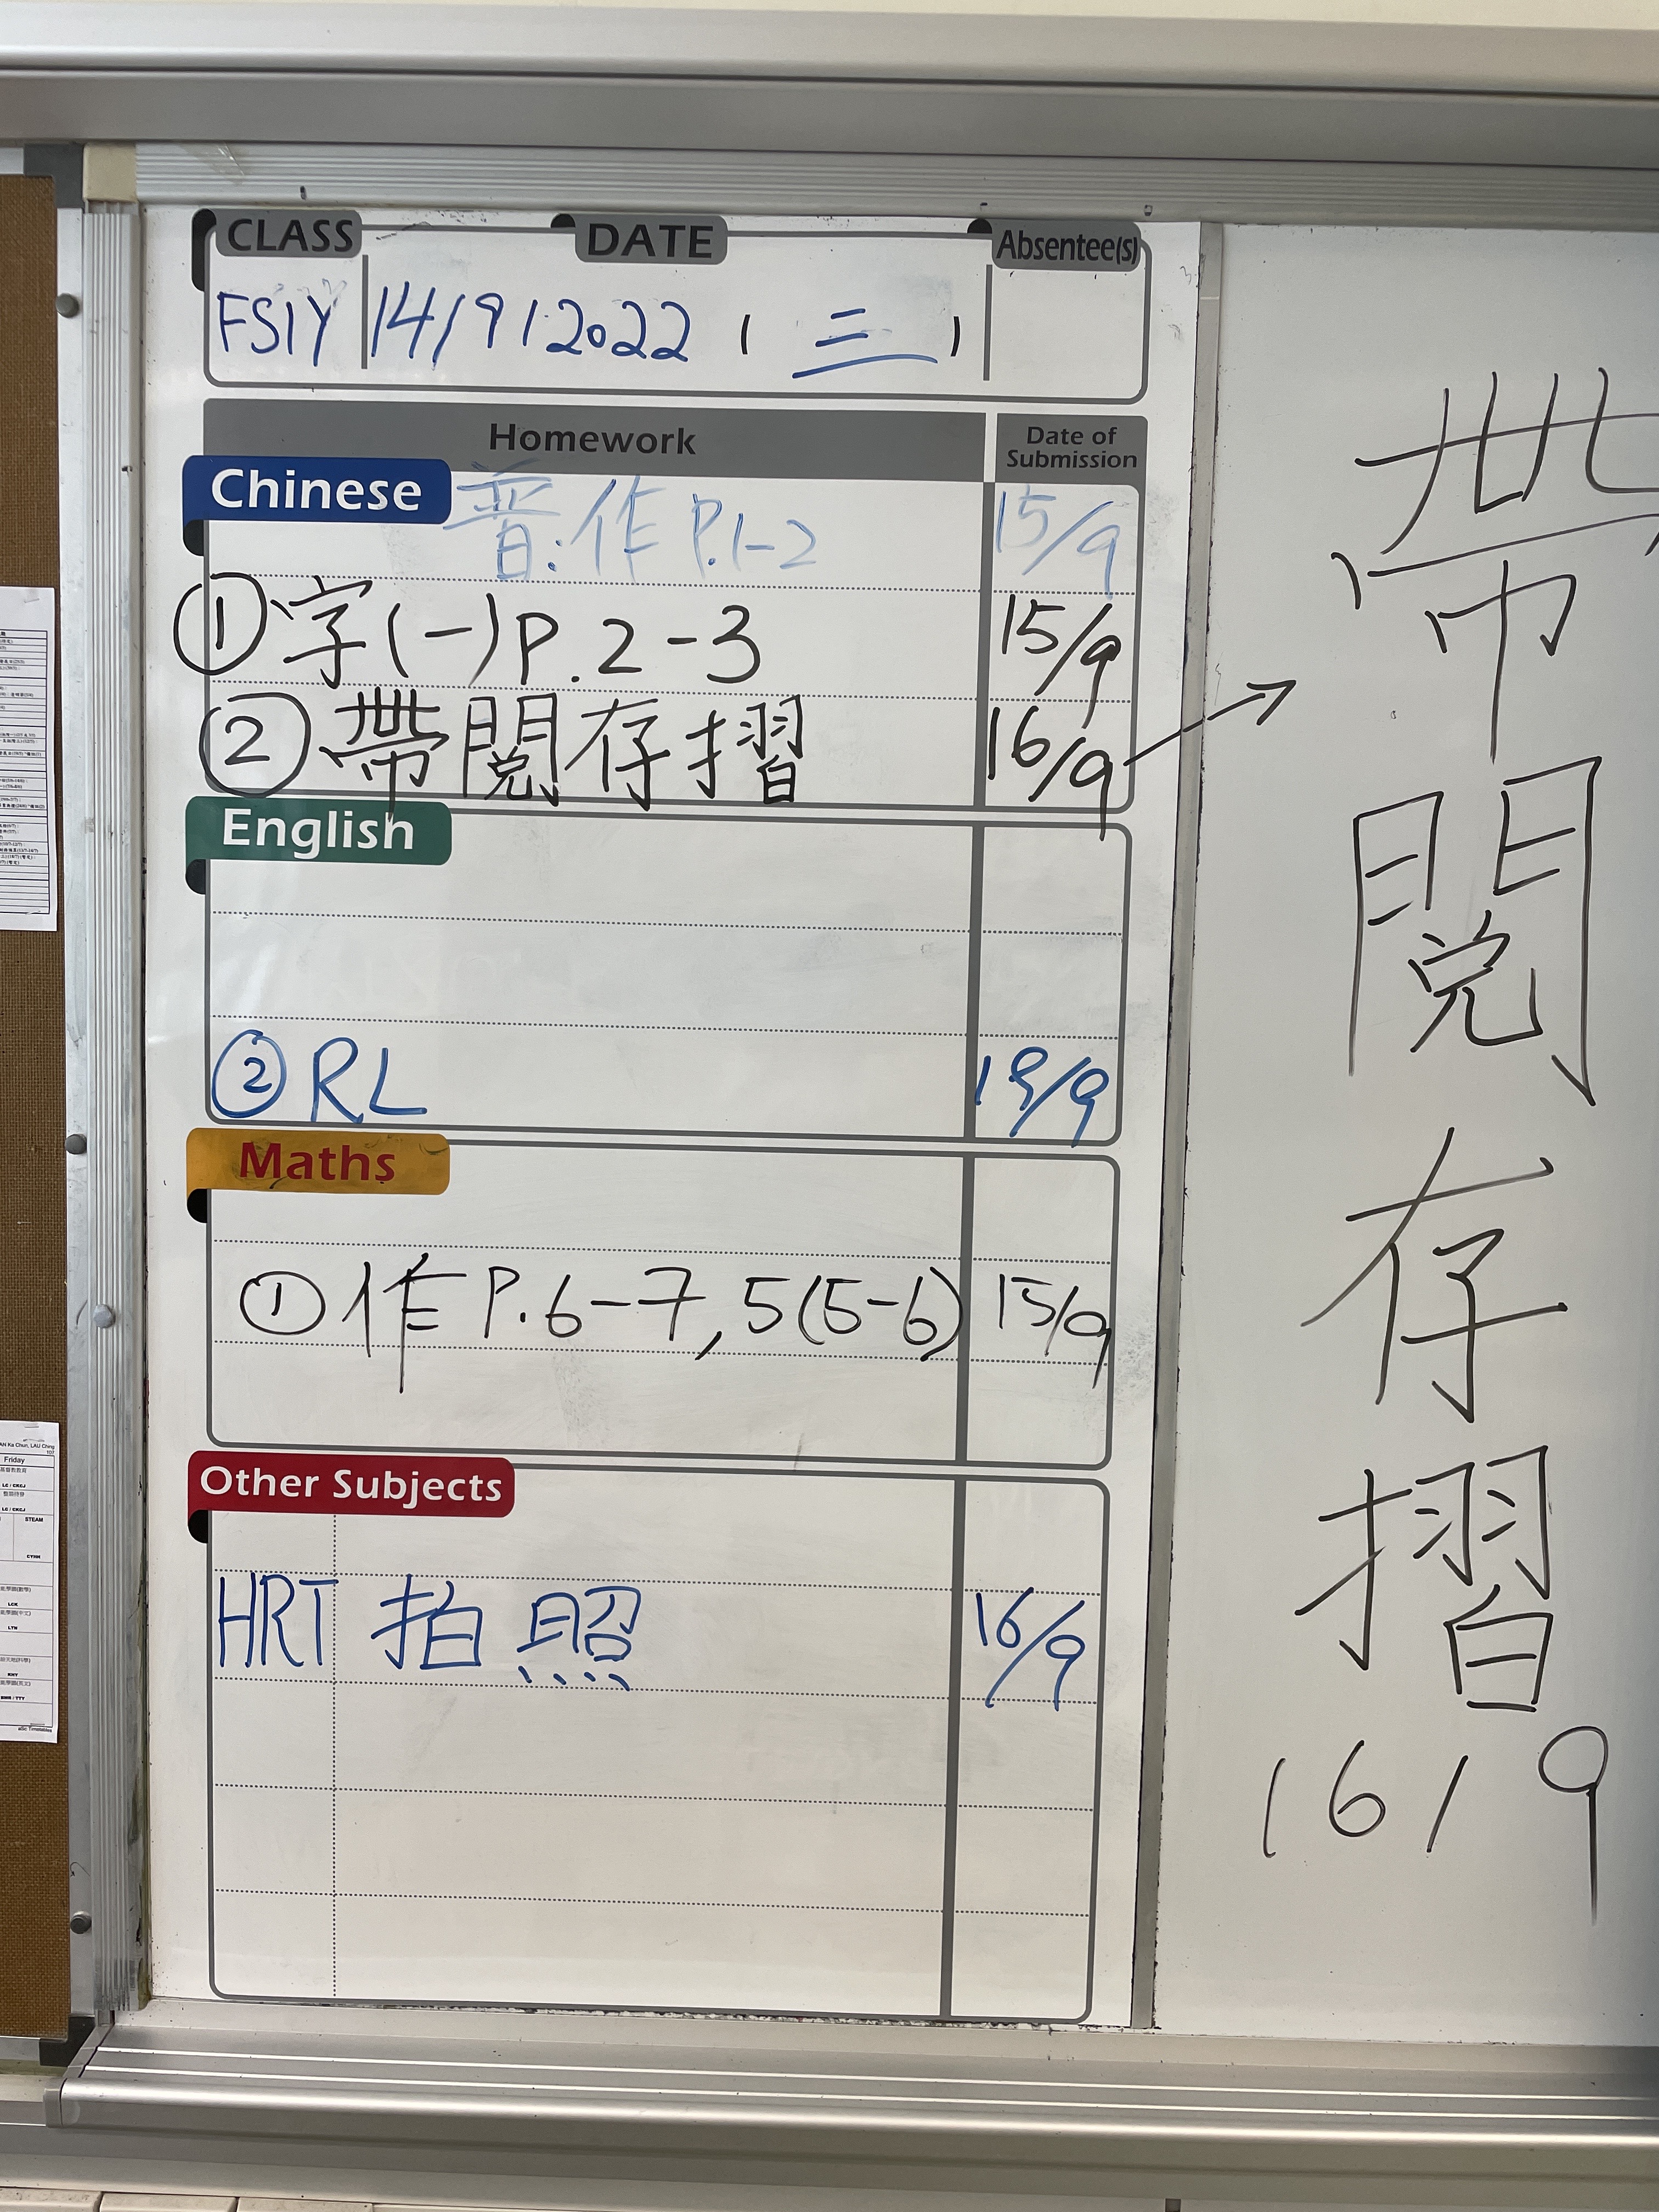 CLASS DATE Absentee(s)
FS1Y 14/9/2022 ( 三 )
Homework Date of Submission
Chinese
普:作 P.1-2 15/9
① 字(一)P.2-3 15/9
② 帶閱存摺 16/9
English
② RL 19/9
Maths
① 作 P.6-7, 5(5-6) 15/9
Other Subjects
HRT 拍照 16/9
帶
閱
存
摺
16/9
Friday
STEAM